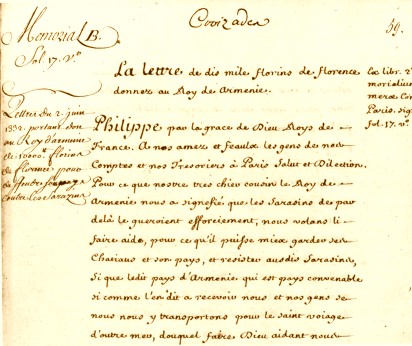 Croizades
59.
Memorial B.
fol. 17. v.º
La lettre de dis mile florins de florence
donnez au Roy de Armenie.
Ex libr. 2
morialium
meræ Co
Paris. sig
fol. 17. v.º
Lettres du 2. juin
1332. portant don
au Roy d'armenie
de 10000.tt florins
de florence pour
deffendre son pays
Contre les sarazins
Philippe par la grace de Dieu Roys de
France. A nos amez et feaulx les gens de nos
Comptes et nos Tresoriers à Paris Salut et Dilection.
Pour ce que nostre tres chieu cousin le Roy de
Armenie nous a signefié que les Sarasins de par
delà le gueroient efforciement, nous volans li
faire aide, pour ce qu'il puisse miex garder ses
Chatiaus et son pays, et resister ausdis Sarasins,
Si que ledit pays d'Armenie qui est pays convenable
si comme l'en dit a recevoir nous et nos gens se
nous nous y transportons pour le saint voiage
d'outre mer, douquel faire Dieu aidant nous